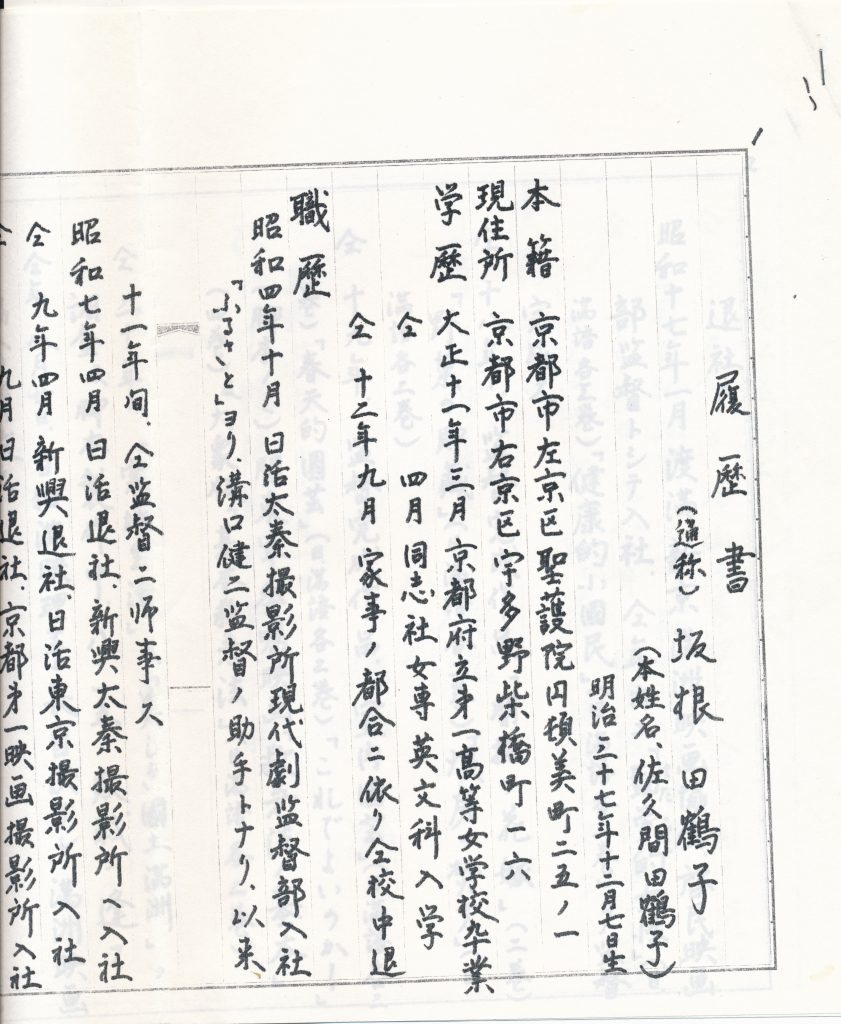 履歴書
(通称)坂根田鶴子
(本姓名、佐久間田鶴子)
明治三十七年十二月七日生
本籍 京都市左京区聖護院円頓美町二五ノ一
現住所 京都市右京区宇多野柴橋町一六
学歴 大正十一年三月 京都府立第一高等女学校卒業
仝 四月 同志社女専英文科入学
仝 十二年九月 家事ノ都合ニ依リ仝校中退
職歴
昭和四年十月 日活太秦撮影所現代劇監督部入社
「ふるさと」ヨリ、溝口健二監督ノ助手トナリ、以来
十一年间、仝監督ニ师事ス
昭和七年四月 日活退社、新興太秦撮影所へ入社
仝 九年四月 新興退社、日活東京撮影所入社
仝 九月日活退社、京都第一映画撮影所入社